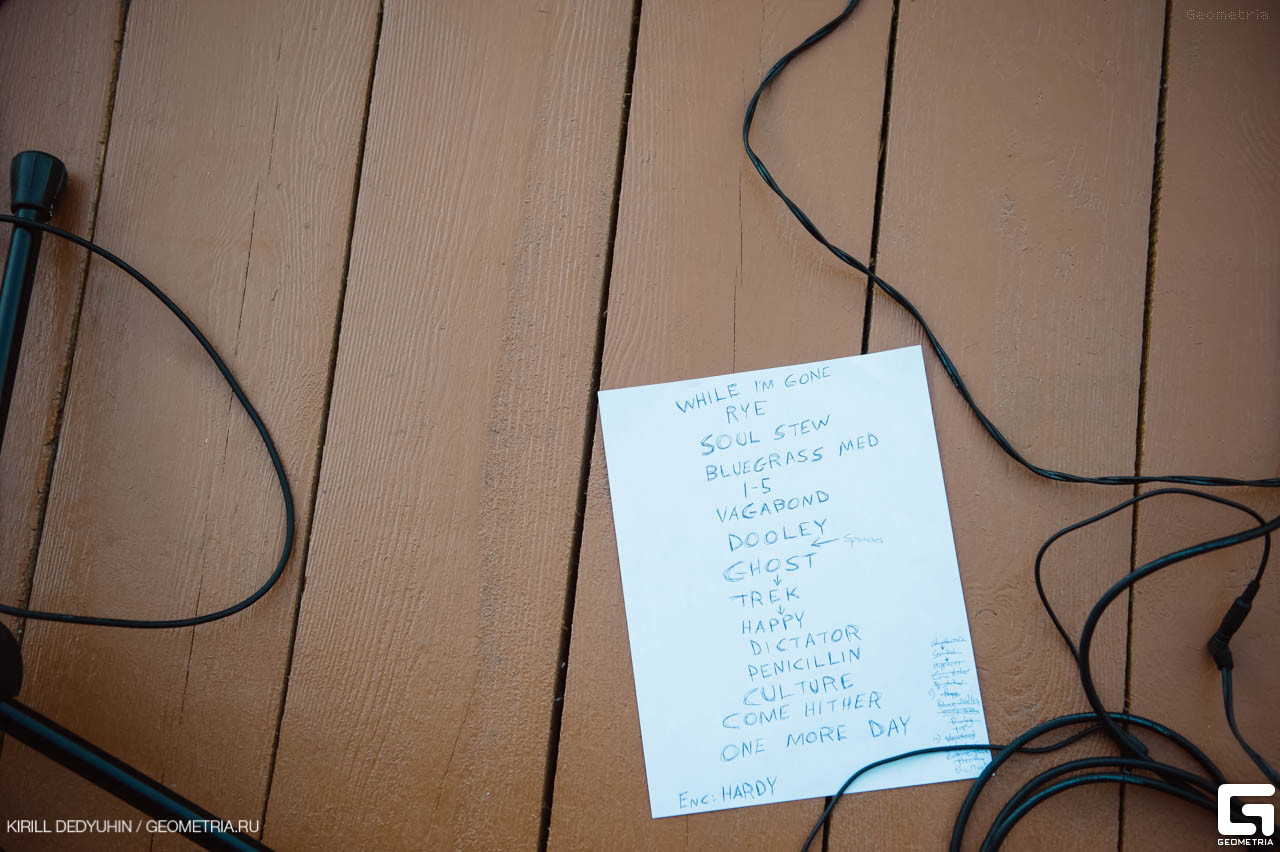 Geometria
WHILE I'M GONE
RYE
SOUL STEW
BLUEGRASS MED
1-5
VAGABOND
DOOLEY
← Sponsors
GHOST
↓
TREK
↓
HAPPY
DICTATOR
PENICILLIN
CULTURE
COME HITHER
ONE MORE DAY
ENC: HARDY
KIRILL DEDYUHIN / GEOMETRIA.RU
GEOMETRIA